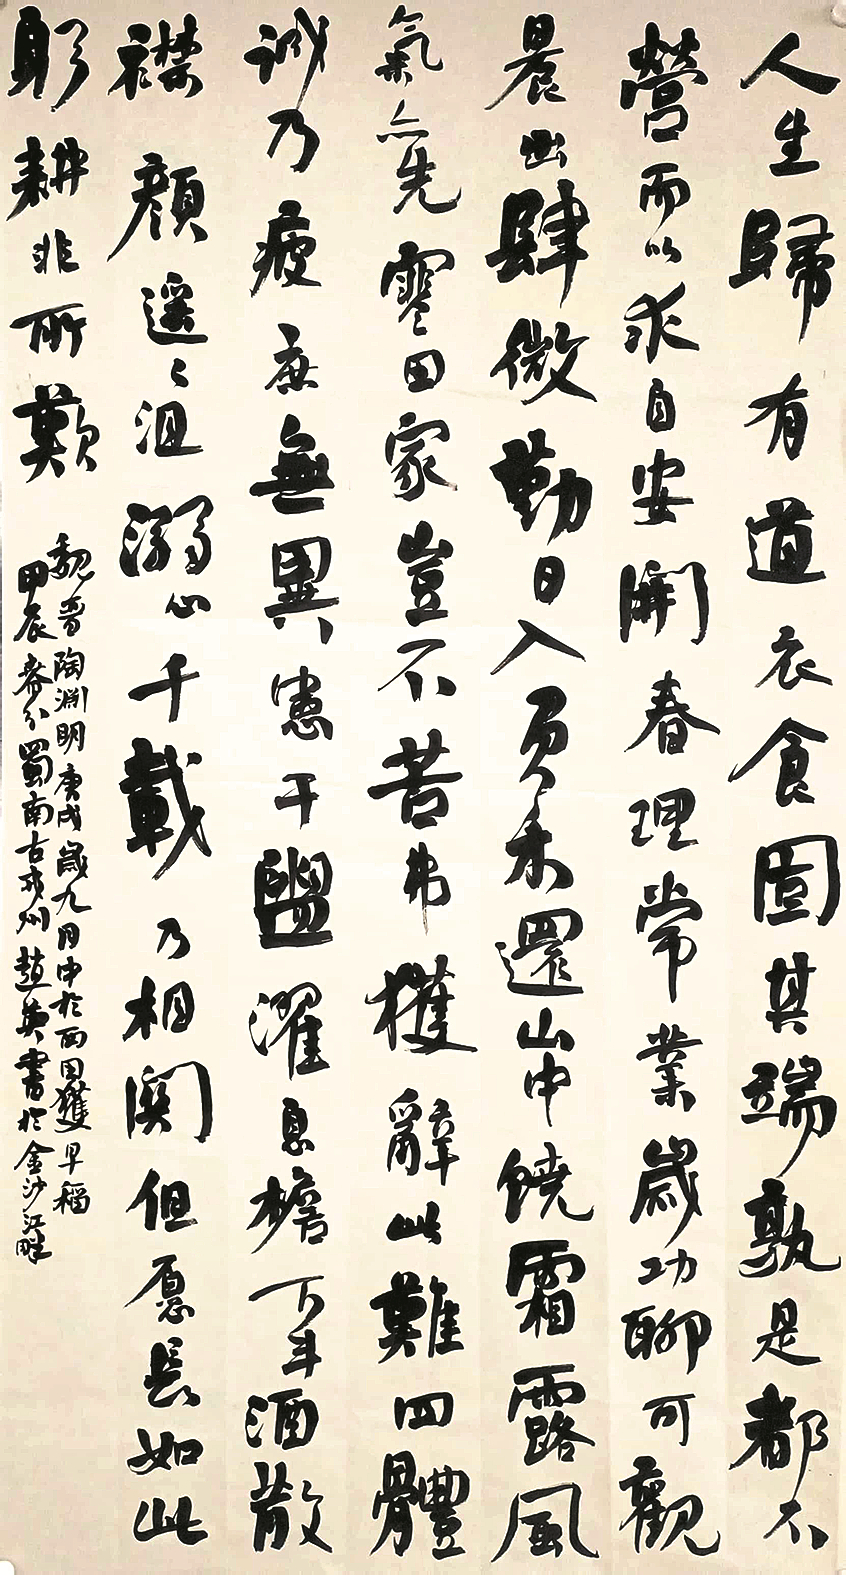 人生歸有道衣食固其端孰是都不
營而以求自安開春理常業歲功聊可觀
晨出肆微勤日入負禾還山中饒霜露風
氣亦先寒田家豈不苦弗獲辭此難四體
誠乃疲庶無異患干盥濯息檐下斗酒散
襟顔遥々沮溺心千載乃相関但愿長如此
躬耕非所歎
魏晉陶淵明庚戌歲九月中於西田獲早稻
甲辰春分蜀南古戎州趙英書於金沙江畔